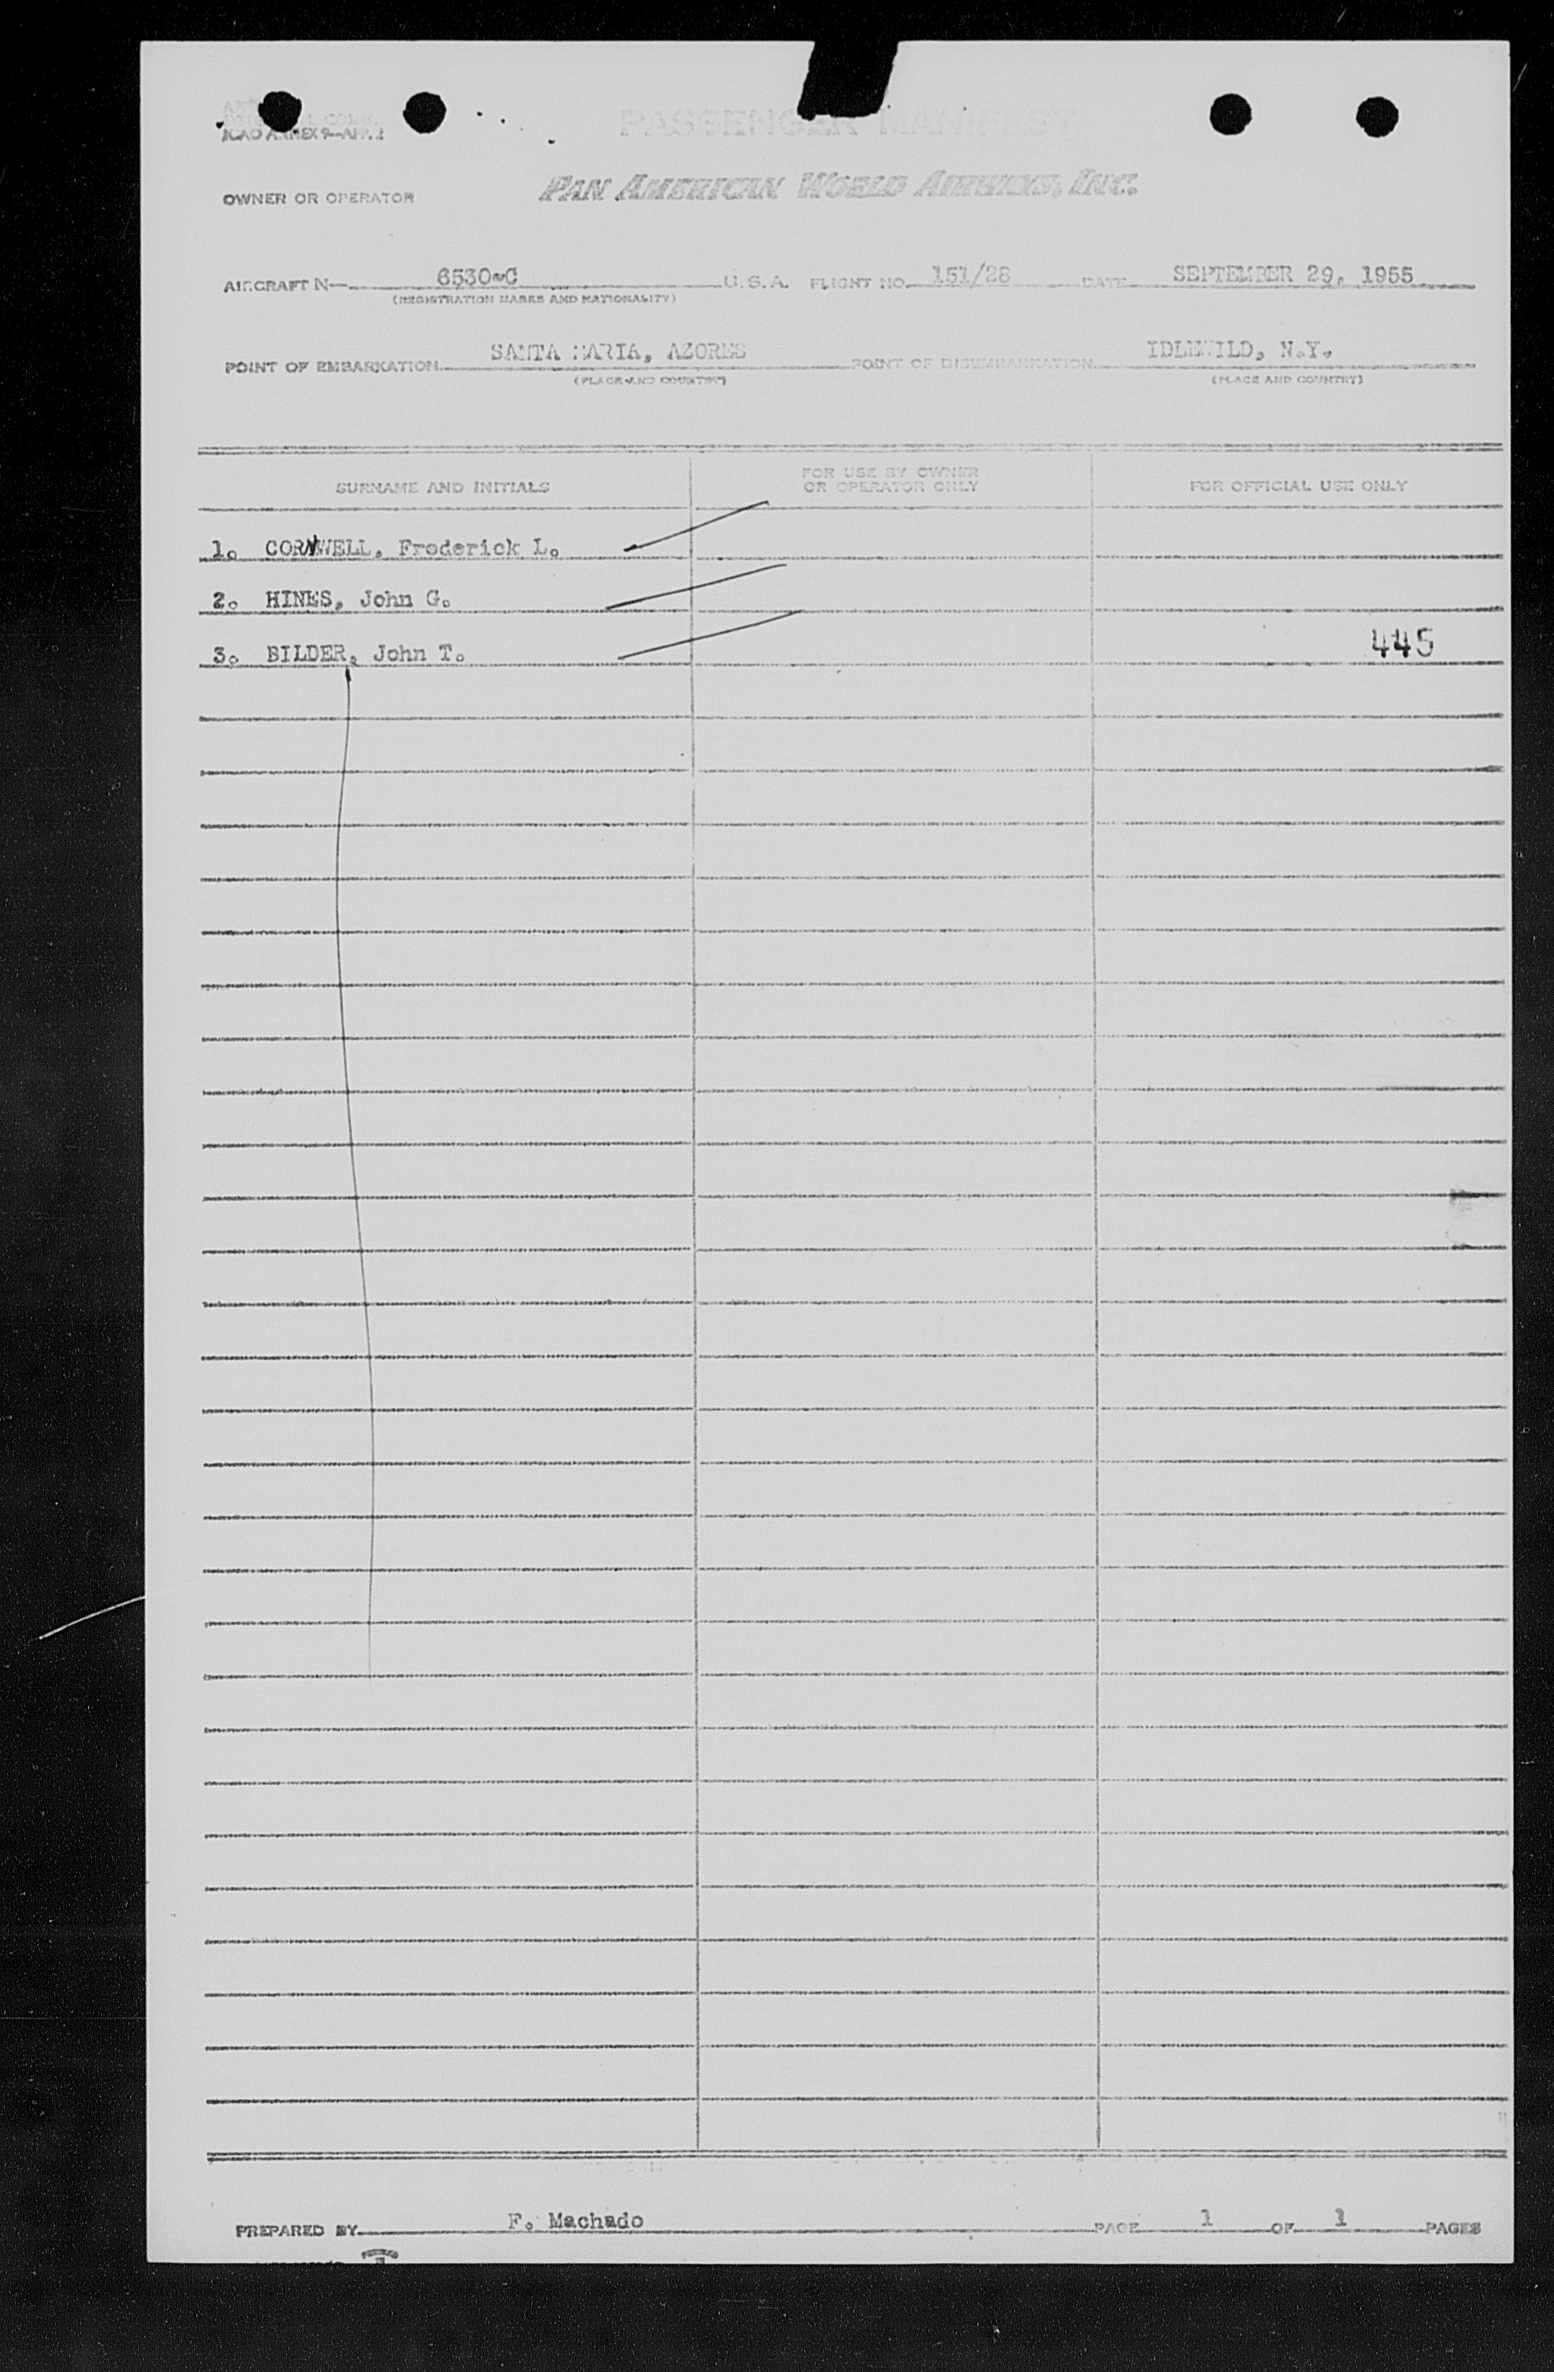 ICAO ANNEX 9—APP. 2
PASSENGER MANIFEST
OWNER OR OPERATOR PAN AMERICAN WORLD AIRWAYS, INC.
AIRCRAFT N— 6530-C U.S.A. FLIGHT NO. 151/28 DATE SEPTEMBER 29, 1955
(REGISTRATION MARKS AND NATIONALITY)
POINT OF EMBARKATION SANTA MARIA, AZORES POINT OF DISEMBARKATION IDLEWILD, N.Y.
(PLACE AND COUNTRY) (PLACE AND COUNTRY)
SURNAME AND INITIALS FOR USE BY OWNER OR OPERATOR ONLY FOR OFFICIAL USE ONLY
1. CORNWELL, Frederick L.
2. HINES, John G.
3. BILDER, John T. 445
PREPARED BY F. Machado PAGE 1 OF 1 PAGES